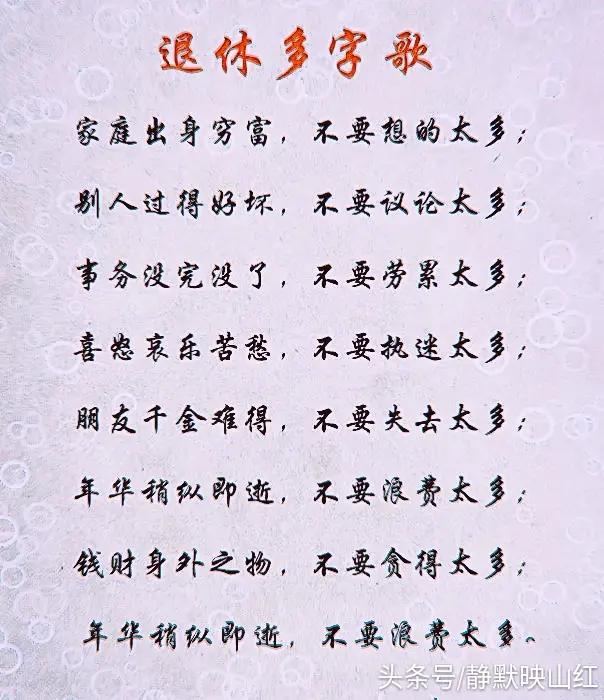 退休多字歌
家庭出身穷富，不要想的太多；
别人过得好坏，不要议论太多；
事务没完没了，不要劳累太多；
喜怒哀乐苦愁，不要执迷太多；
朋友千金难得，不要失去太多；
年华稍纵即逝，不要浪费太多；
钱财身外之物，不要贪得太多；
年华稍纵即逝，不要浪费太多。
头条号/静默映山红